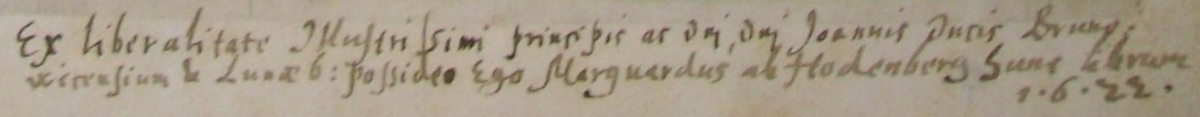 Ex liberalitate Illustrissimi principis ac Dni, Dni Joannis Ducis Bruns:
vicensium & Lunæb: possideo Ego Marquardus ab Hodenberg hunc librum
1·6·22·